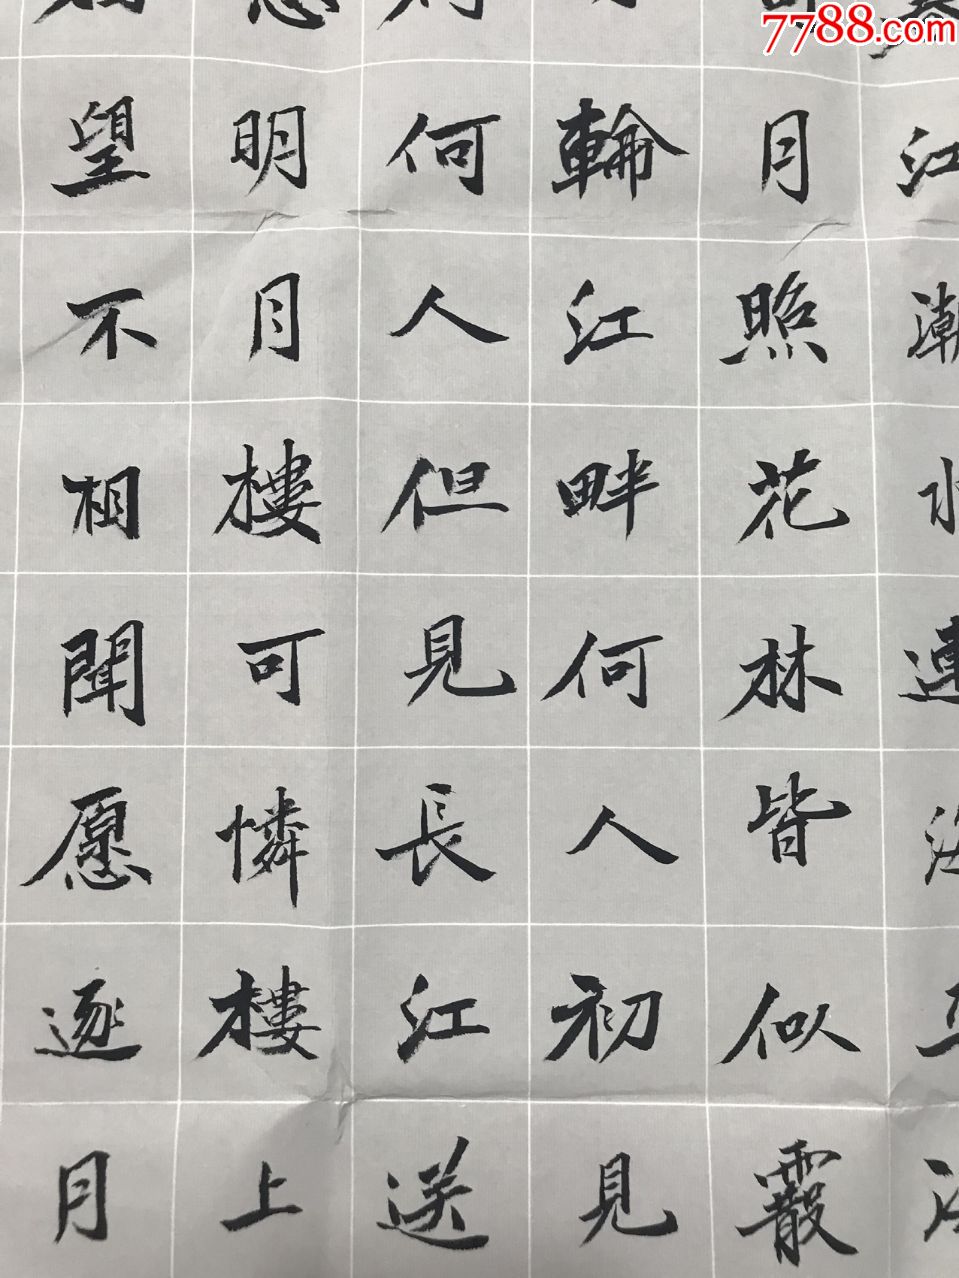 7788.com
江潮水連海
月照花林皆似霰
輪江畔何人初見
何人但見長江送
明月樓可憐樓上
望不相聞愿逐月